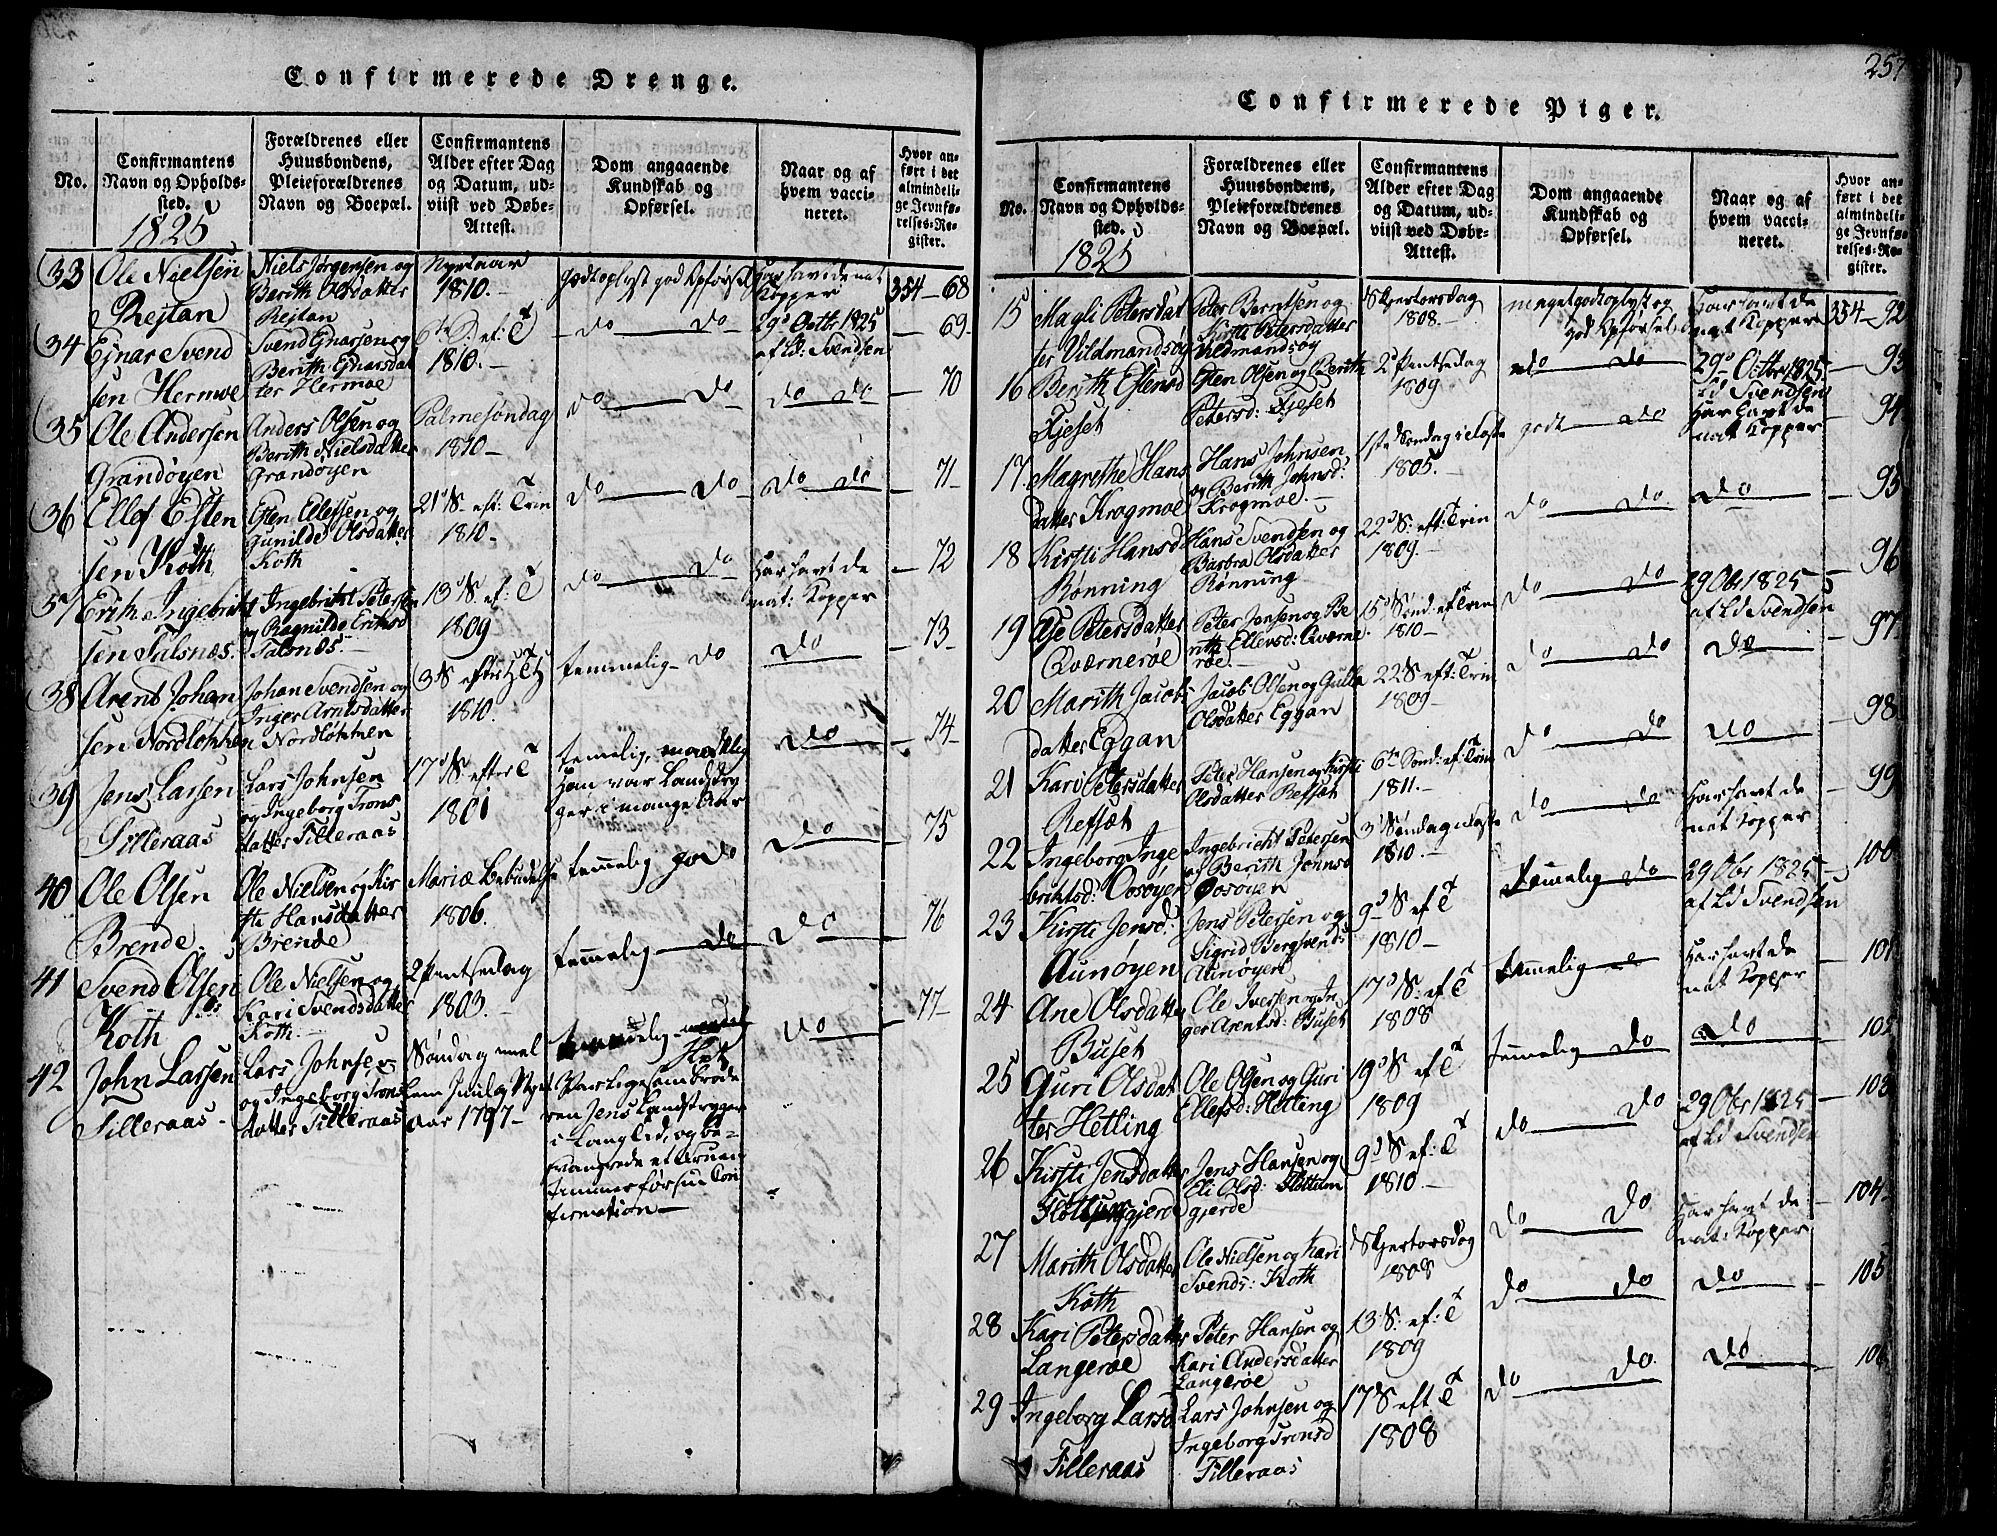 Confirmerede Drenge.
No.
Confirmantens
Navn og Opholds-
sted.
1825
Forældrenes eller
Huusbondens,
Pleieforældrenes
Navn og Boepæl.
Confirmantens
Alder efter Dag
og Datum, ud-
viist ved Døbe-
Attest.
Dom angaaende
Kundskab og
Opførsel.
Naar og af
hvem vacci-
neret.
Hvor an-
ført i det
almindeli-
ge Jevnfø-
relses-Re-
gister.
33 Ole Nielsen
Rejtan
Niels Jørgensen og
Berith Olsdatter
Rejtan
Nyetaar
1810.-
godt oplyst god Opførsel
har havt de nat
Kopper
354-68
34 Ejnar Svend
sen Hermoe
Svend Ejnarsen og
Berith Ejnarsdat
ter Hermoe
6te S. ef: T
1810.-
do do
29d Octbr 1825
af Ld: Svendsen
- 69-
35 Ole Andersen
Grandøyen
Anders Olsen og
Berith Nielsdatter
Grandøyen
Palmesøndag
1810-
do do
do do
- 70
36 Ellef Esten
sen Koth
Esten Ellefsen og
Gunilde Olsdatter
Koth
21d S. eft: Trin
1810-
do do
do do
- 71
37 Erik Ingebrikt
sen Talsnæs.
Ingebrikt Petersen
og Ragnilde Eriksd
Talsnæs.-
13d S. ef: T
1809-
do do
Har havt de
nat: Kopper
- 72
38 Arent Johan
sen Nordløkken
Johan Svendsen og
Inger Arntsdatter
Nordløkken
3 S efter
1810.
temmelig do
do
- 73
39 Jens Larsen
Tilleraas
Lars Johnsen
og Ingeborg Trons
datter Tilleraas
17d S. efter T
1801
temelig,
Han var Landstry
ger i mange Aar
do
- 74
40 Ole Olsen
Brende.
Ole Nielsen og Kir
sti Hansdatter
Brende
Mariæ Bebudelse
1806.
temmelig god
do
- 75
41 Svend Olsen
Koth
Ole Nielsen og
Kari Svendsdatter
Koth.-
2 Pentsedag
1803.-
temmelig do
do
- 76
42 John Larsen
Tilleraas-
Lars Johnsen
og Ingeborg Trons
datter Tilleraas
Søndag mel
lem Juul og Nyt
aar 1797-
Var ligesom brode
ren Jens Landstryger
i Langtid, og
et
for sin Con
firmation-
do
- 77
257
Confirmerede Piger.
No.
Confirmantens
Navn og Opholds-
sted.
1825
Forældrenes eller
Huusbondens,
Pleieforældrenes
Navn og Boepæl.
Confirmantens
Alder efter Dag
og Datum, ud-
viist ved Døbe-
Attest.
Dom angaaende
Kundskab og
Opførsel.
Naar og af
hvem vacci-
neret.
Hvor an-
ført i det
almindeli-
ge Jevnfø-
relses-Re-
gister.
15 Magli Petersdat
ter Vildmandsøg
Peter Berntsen og
Kirsti Petersdatter
Vildmandsøg
Skjertorsdag
1808-
meget godt oplyst og
god Opførsel
Har havt de
nat Kopper
354-92
16 Berith Estensd
Fjeset
Esten Olsen og Berith
Petersd: Fjeset
2d Pentsedag
1809
do do
29d Octbr 1825
Ld Svendsen
- 93
17 Magrethe Hans
datter Krogmoe
Hans Johnsen
og Berith Johnsd:
Krogmoe.-
1ste Søndag i Faste
1805.-
godt do
Har havt de
nat Kopper
- 94
18 Kirsti Hansd
Rønning
Hans Svendsen og
Barbra Olsdatter
Rønning
22d S: eft: Trin
1809.-
do do
do
- 95
19 Else Petersdatter
Qværnerøe
Peter Jensen og Be
rith Ellevsd: Qværne
røe.-
15d Sønd: ef Trin
1810-
do do
29 Obr 1825
af Ld Svendsen
- 96
20 Marith Jacobs
datter Eggan
Jacob Olsen og Gulla
Olsdatter Eggan
22 S eft: Trin
1809-
do do
do
- 97
21 Kari Petersdatter
Refsæt
Peter Hansen og Kirsti
Olsdatter Refsæt
6te Sønd: ef: Trin
1811.-
do do
do
- 98
22 Ingeborg Inge
briktsd: Oosøyen
Ingebricht Petersen
og Berith Johnsd
Oosøyen
3d Søndag i Faste
1810.-
do do
Har havt de
nat Kopper
- 99
23 Kirsti Jensd:
Aunøyen
Jens Petersen og
Sigrid Bergsvends
Aunøyen
9d S ef T
1810-
temmelig do
29 Obr 1825
af Ld Svendsen
- 100
24 Ane Olsdatter
Buset
Ole Iversen og In
ger Arentsd: Buset
17d S: ef T
1808
temmelig
Har havt de
nat Kopper
- 101
25 Guri Olsdat
ter Hetling
Ole Olsen og Guri
Ellefsd: Hetling
19d S ef T
1809
temmelig do
do
- 102
26 Kirsti Jensdatter
Flottumgjerd
Jens Hansen og
Eli Olsd: Flottum
gjerde
9d S ef: T
1810-
do do
29 Obr 1825
af Ld Svendsen
- 103
27 Marith Olsdatter
Koth
Ole Nielsen og Kari
Svends: Koth
Skjertorsdag
1808
do do
Har havt de
nat: Kopper
- 104
28 Kari Petersdatter
Langerøe
Peter Hansen og
Kari Andersdatter
Langerøe
13 S: ef: T
1809
do do
do
- 105
29 Ingeborg Larsd
Tilleraas
Lars Johnsen og
Ingeborg Tronsd
Tilleraas
17 S eft T
1808
do do
do
- 106